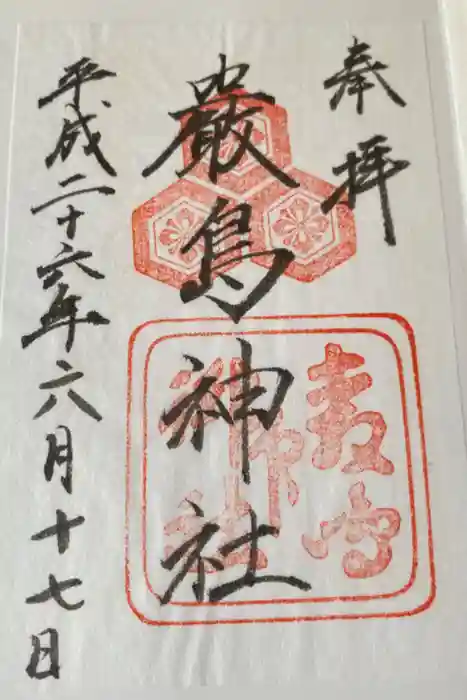 奉拝
嚴島神社
平成二十六年六月十七日